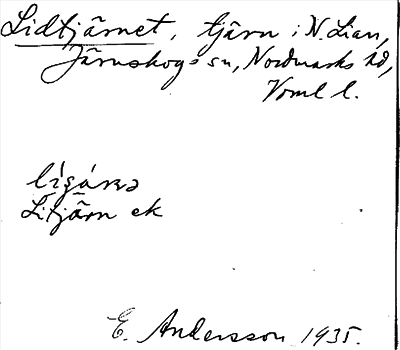 Lidtjärnet, tjärn i N. Lian,
Järnskogs sn, Nordmarks hd,
Vrml l.
Litjärn ek
E. Andersson 1935.